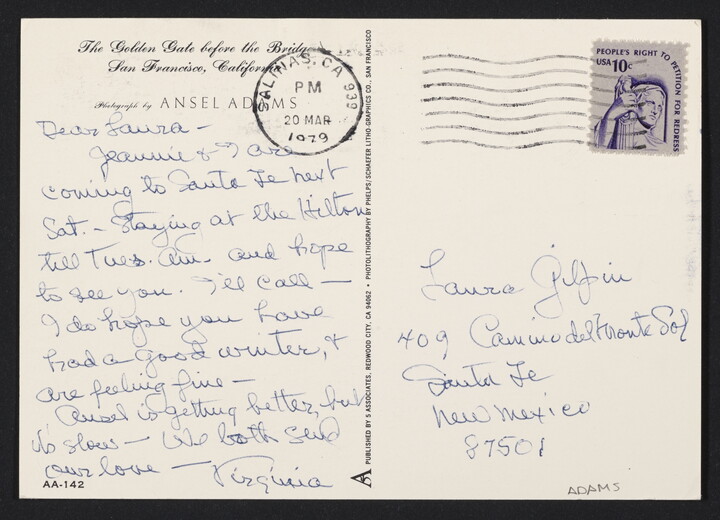 The Golden Gate before the Bridge
San Francisco, California
Photograph by ANSEL ADAMS
Dear Laura –
Jeannie & I are
coming to Santa Fe next
Sat. – Staying at the Hilton
till Tues. am. and hope
to see you. I'll call –
I do hope you have
had a good winter, &
are feeling fine –
Ansel is getting better, but
it's slow – We both send
our love – Virginia
AA-142
PUBLISHED BY 5 ASSOCIATES, REDWOOD CITY, CA 94062 • PHOTOLITHOGRAPHY BY PHELPS/SCHAEFER LITHO-GRAPHICS CO., SAN FRANCISCO
SALINAS, CA 939
PM
20 MAR
1979
PEOPLE'S RIGHT TO PETITION FOR REDRESS
USA 10c
Laura Gilpin
409 Camino del Monte Sol
Santa Fe
New Mexico
87501
ADAMS